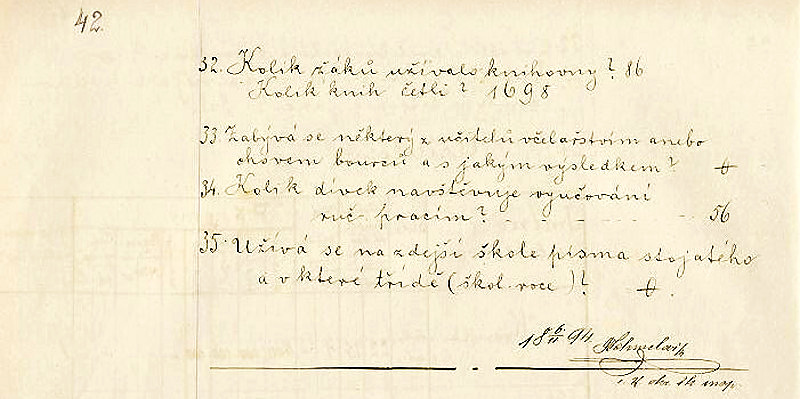 42.
32. Kolik žáků užívalo knihovny? 86
Kolik knih četli? 1698
33. Zabývá se některý z učitelů včelařstvím anebo
chovem bourců a s jakým výsledkem? 0
34. Kolik dívek navštěvuje vyučování
ruč. pracím? - - - - - - 56
35. Užívá se na zdejší škole písma stojatého
a v které třídě (škol. roce)? 0.
18 6/11 94